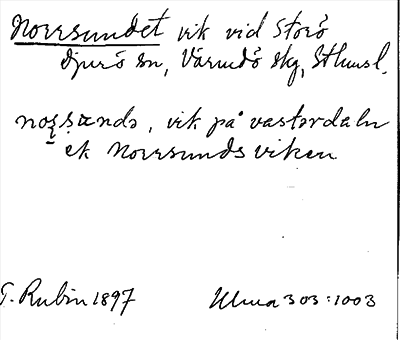 Norrsundet vik vid Storö
Djurö sn, Värmdö skg, Sthmsl.
vik på västerdaln
ek Norrsundsviken
T. Rubin 1897 Ulma 303:1003